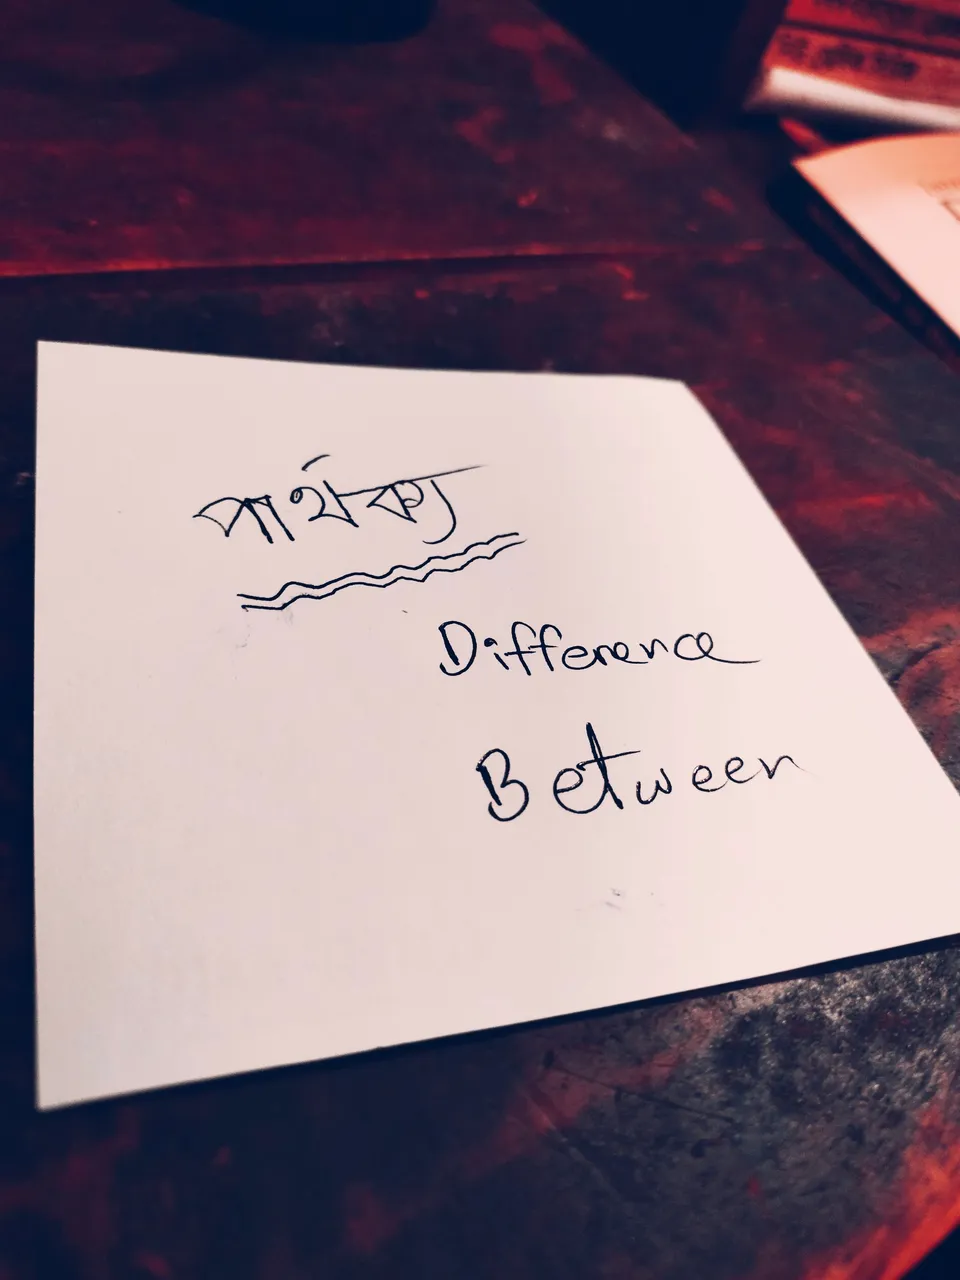 পার্থক্য
Difference
Between